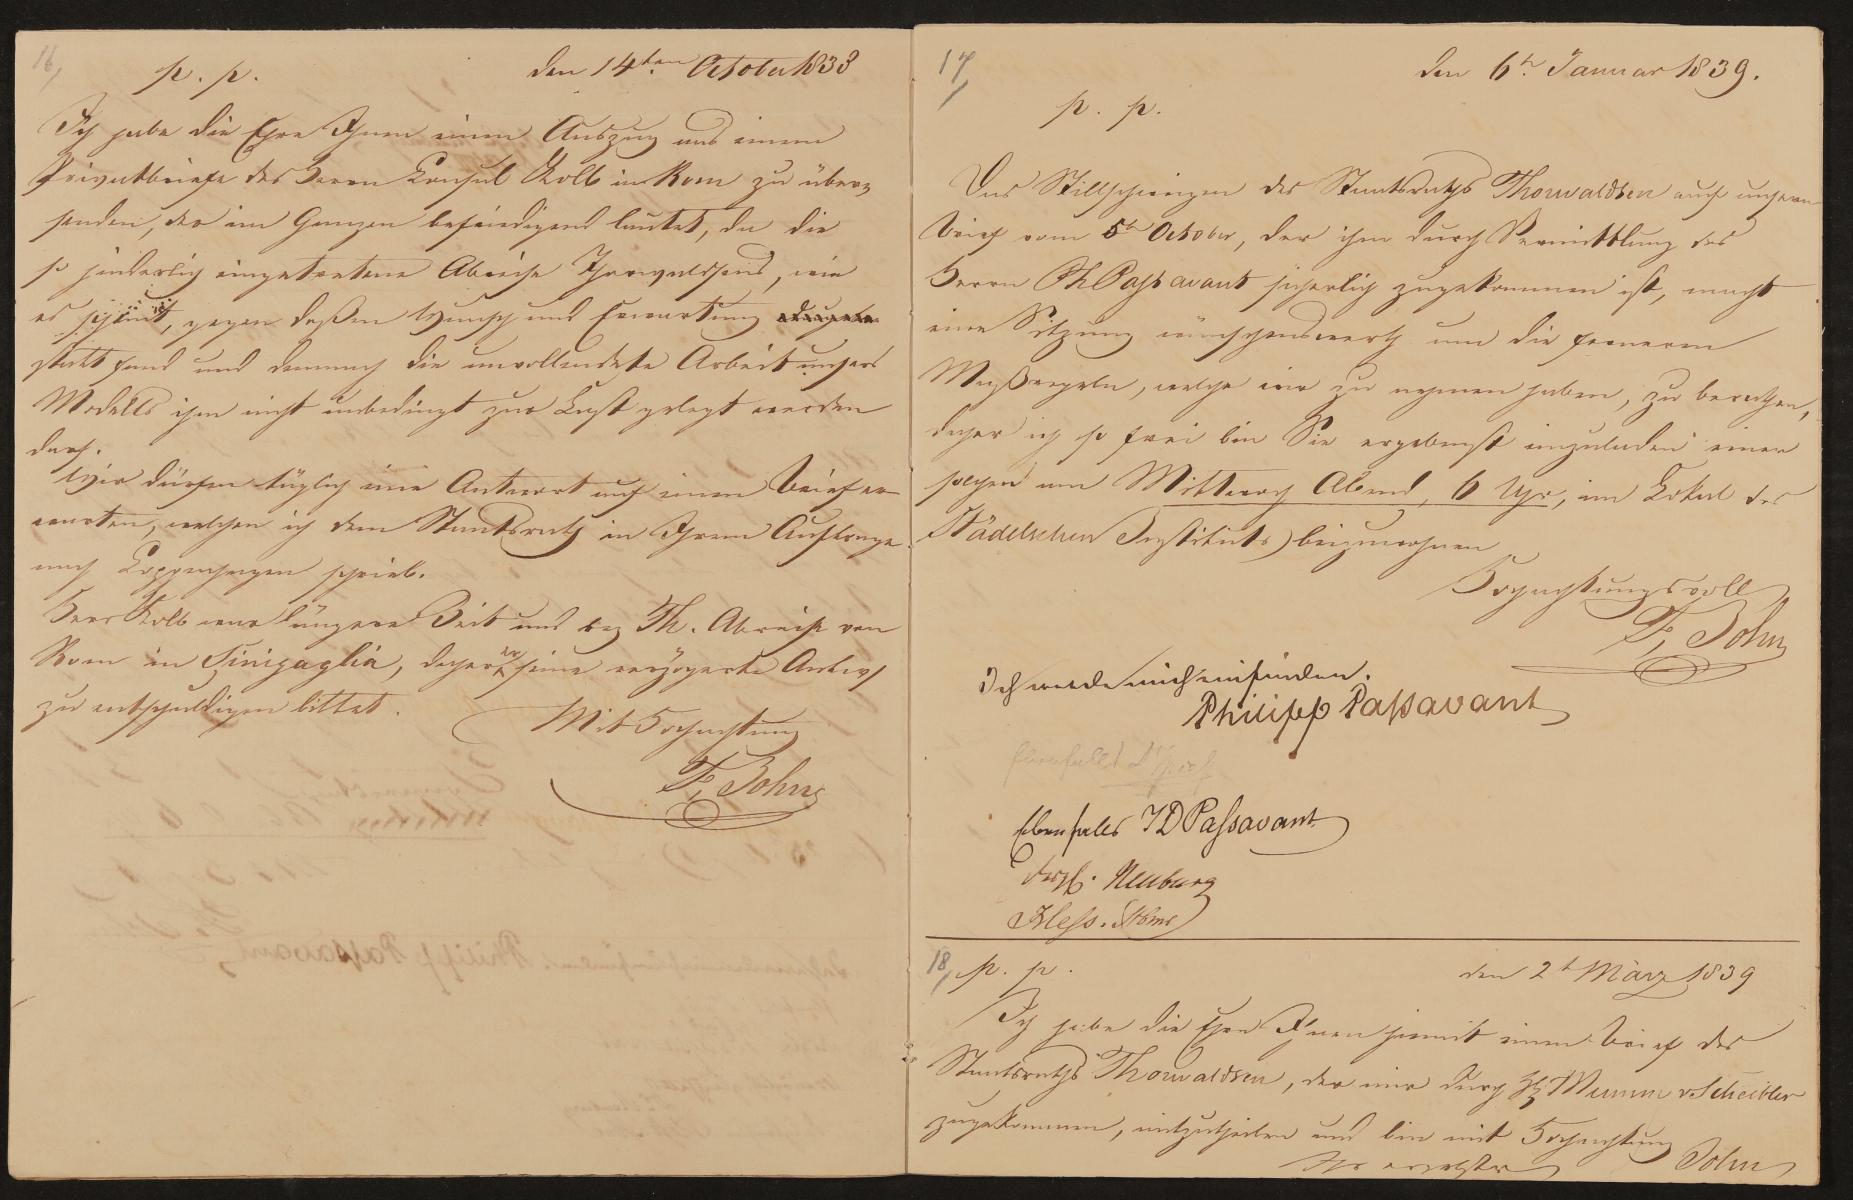 16,
p. p.
den 14ten October 1838
Ich habe die Ehre Ihnen einen Auszug aus einem
Privatbriefe des Herrn Consul Kolb in Rom zu über=
senden, der im Ganzen befriedigend lautet, da die
so hinderlich eingetretene Abreise Thorwaldsens, wie
es scheint, gegen deßen Wunsch und Erwartung
statt fand und demnach die unvollendete Arbeit unsers
Modells ihm nicht unbedingt zur Last gelegt werden
darf.
Wir dürfen täglich eine Antwort auf einen Brief er=
warten, welchen ich dem Staatsrath in Ihrem Auftrage
nach Coppenhagen schrieb.
Herr Kolb war längere Zeit und bey Th. Abreise von
Rom in Sinigaglia, daher er seine verzögerte Antw
zu entschuldigen bittet.
Mit Hochachtung
F, John
17,
den 6tn Januar 1839.
p. p.
Das Stillschweigen des Staatsraths Thorwaldsen auf unsern
Brief vom 5tn October, der ihm durch Vermittlung des
Herrn Ph Paßavant sicherlich zugekommen ist, macht
eine Sitzung wünschenswerth um die ferneren
Maßregeln, welche wir zu nehmen haben, zu berathen,
daher ich so frei bin Sie ergebenst einzuladen einer
solchen am Mittwoch Abend, 6 Uhr, im Lokal des
Städelschen Instituts beizuwohnen
Hochachtungsvoll
F, John
Ich werde mich einfinden.
Philipp Paßavant
Ebenfalls JD Paßavant
desgl. Neuburg
Hess.
18,
p. p.
den 2t März 1839
Ich habe die Ehre Ihnen hiemit einen Brief des
Staatsraths Thorwaldsen, der mir durch HH Mumm v Scheibler
zugekommen, mitzutheilen und bin mit Hochachtung
Ihr ergebster John